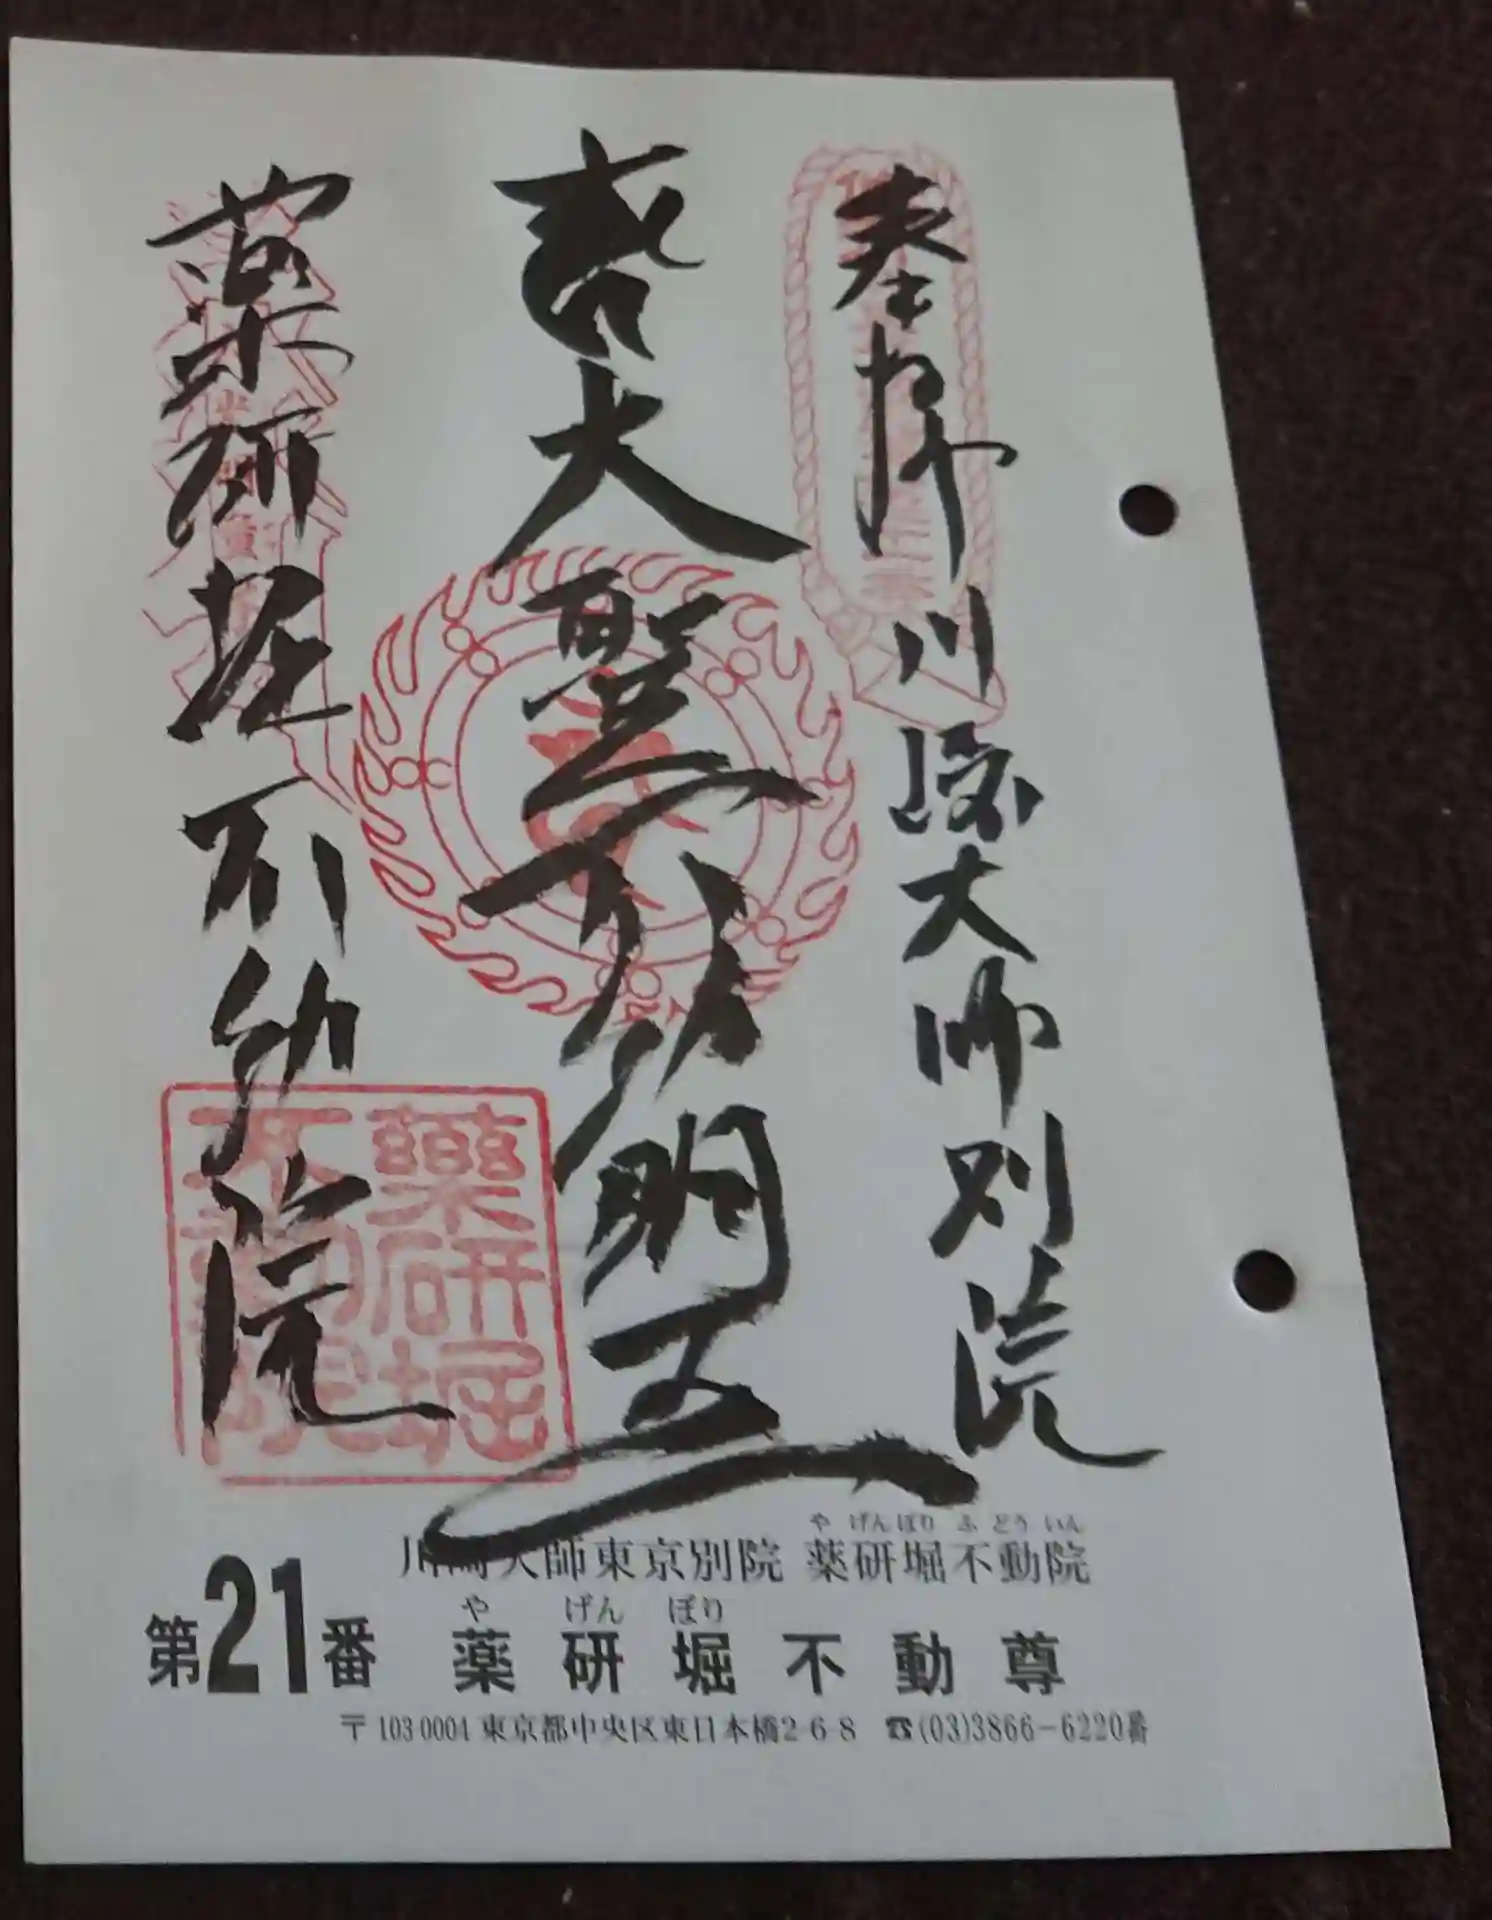 奉拝 川崎大師別院
大聖不動明王
薬研堀不動院
薬研堀
不動院
やげんぼりふどういん
川崎大師東京別院 薬研堀不動院
やげんぼり
第21番 薬研堀不動尊
〒103-0004 東京都中央区東日本橋2-6-8 ☎(03)3866-6220番